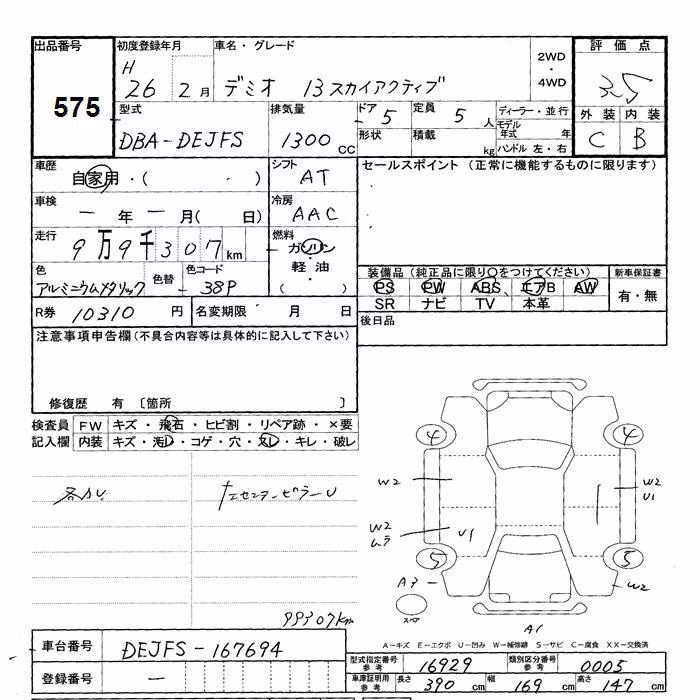 出品番号 575
初度登録年月 H 26 2月
車名・グレード デミオ 13スカイアクティブ
2WD・4WD
評価点 3.5
型式 DBA-DEJFS
排気量 1300cc
ドア 5
定員 5人
形状
積載 kg
ディーラー・並行
モデル年式 年
ハンドル 左・右
外装 内装
C B
車歴 自家用・( )
シフト AT
セールスポイント(正常に機能するものに限ります)
車検 ー年ー月( 日)
冷房 AAC
走行 9万9千307km
燃料 ガソリン 軽・油 ( )
色 アルミニウムメタリック
色替
色コード 38P
装備品(純正品に限り○をつけてください)
PS PW ABS エアB AW
SR ナビ TV 本革
新車保証書 有・無
R券 10310円
名変期限 月 日
後日品
注意事項申告欄(不具合内容等は具体的に記入して下さい)
修復歴 有 〔箇所 〕
検査員記入欄
FW キズ・飛石・ヒビ割・リペア跡・×要
内装 キズ・汚レ・コゲ・穴・スレ・キレ・破レ
各小U
センターピラーU
99307km
4 4
W2 W2 U1
W2 ムラ U1
5 5
A3 W2
スペア
A1
A-キズ E-エクボ U-凹み W-補修跡 S-サビ C-腐食 XX-交換済
車台番号 DEJFS-167694
登録番号 ー
型式指定番号参考 16929
類別区分番号参考 0005
車庫証明用参考 長さ 390cm 幅 169cm 高さ 147cm